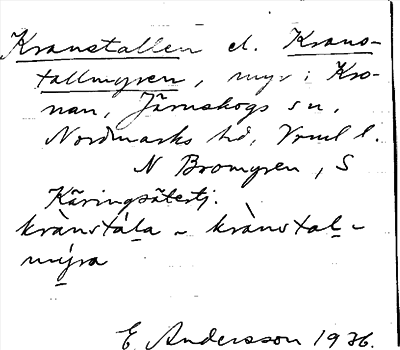 Kranstallen el. Krans-
tallmyren, myr i Kro-
nan, Järnskogs sn,
Nordmarks hd, Vrml l.
N Bromyren, S
Käringsätertj.
krànstála ~ krànstal-
mýra
E. Andersson 1936.